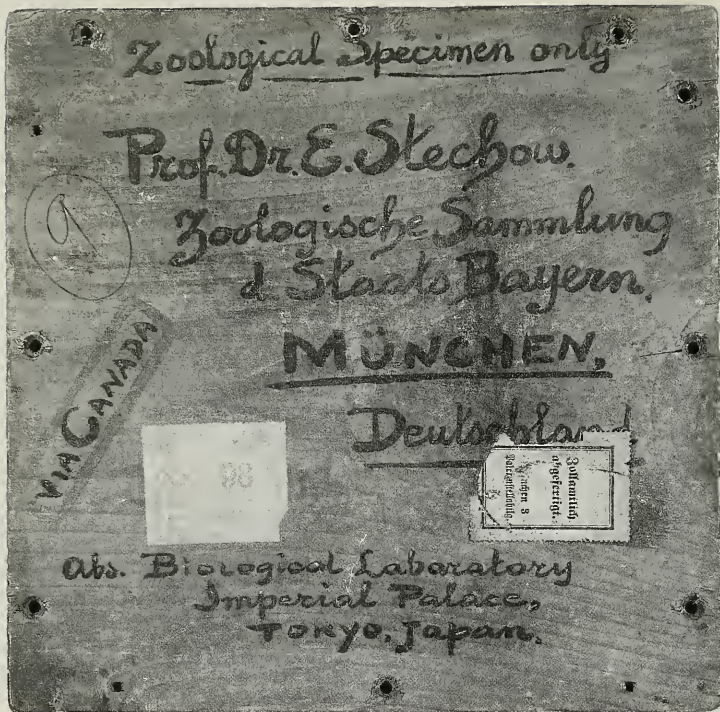 Zoological Specimen only
Prof. Dr. E. Stechow.
9
Zoologische Sammlung
d Staats Bayern.
MÜNCHEN,
VIA CANADA
Deutschland
98
Zollamtlich
abgefertigt.
München 3
Abs. Biological Labaratory
Imperial Palace,
TOKYO, Japan.